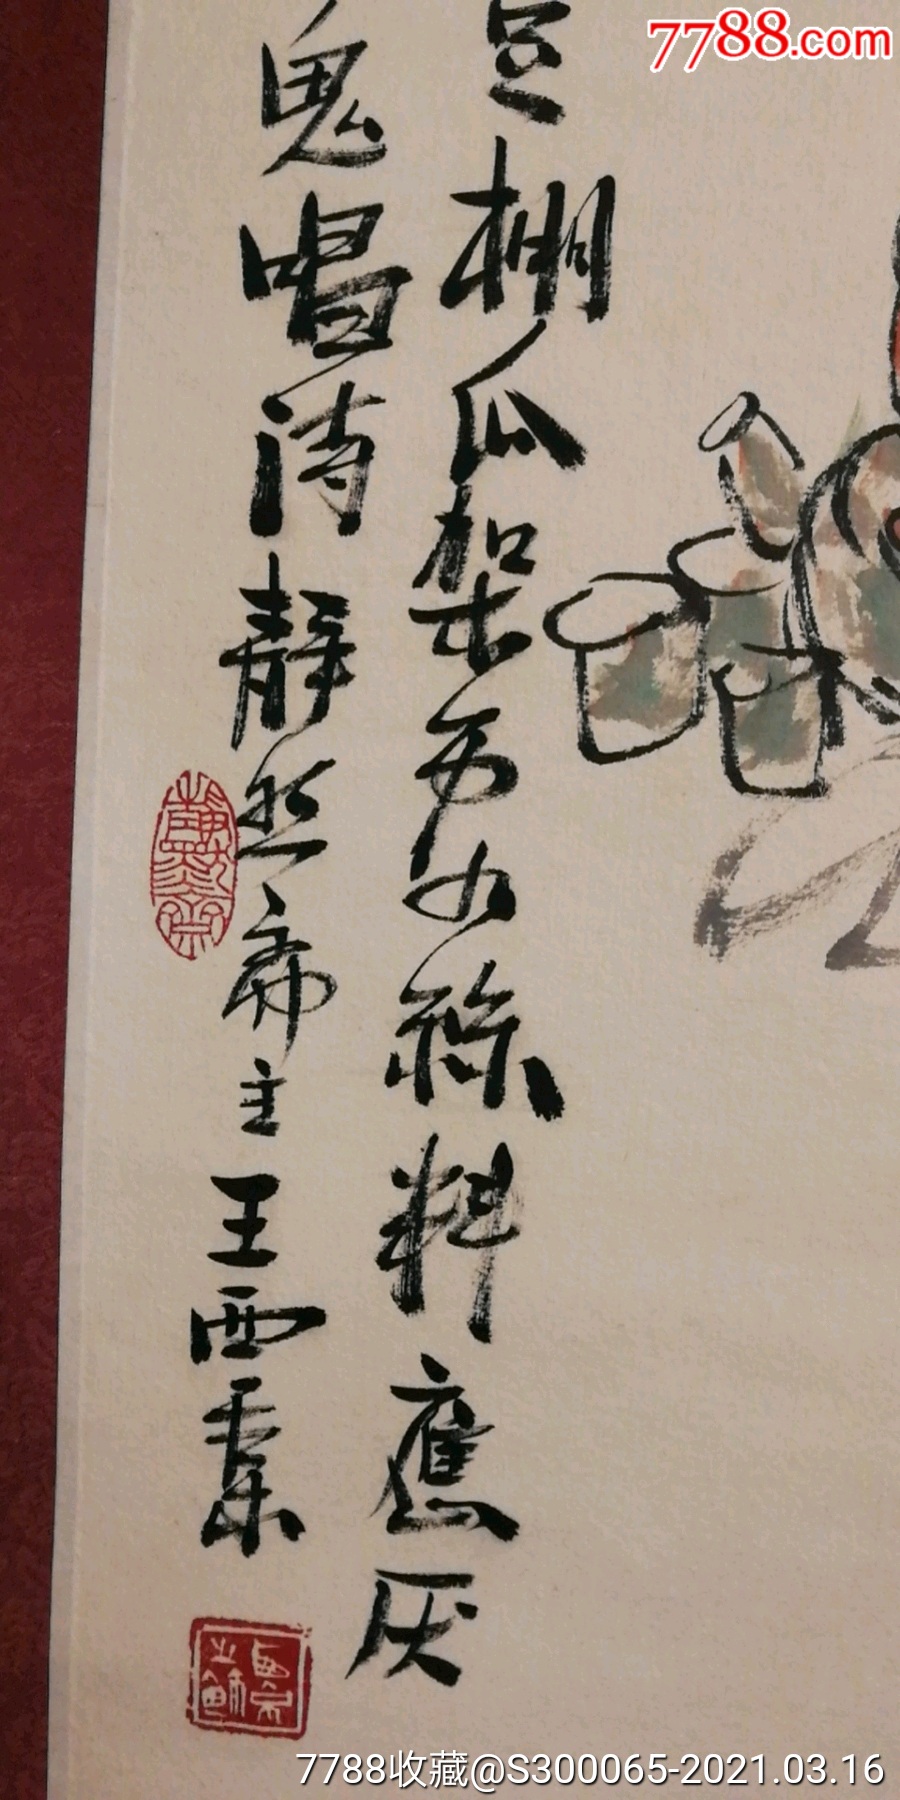 7788.com
豆棚瓜架雨如絲料應厌
鬼唱诗静然斋主王西
7788收藏@S300065-2021.03.16